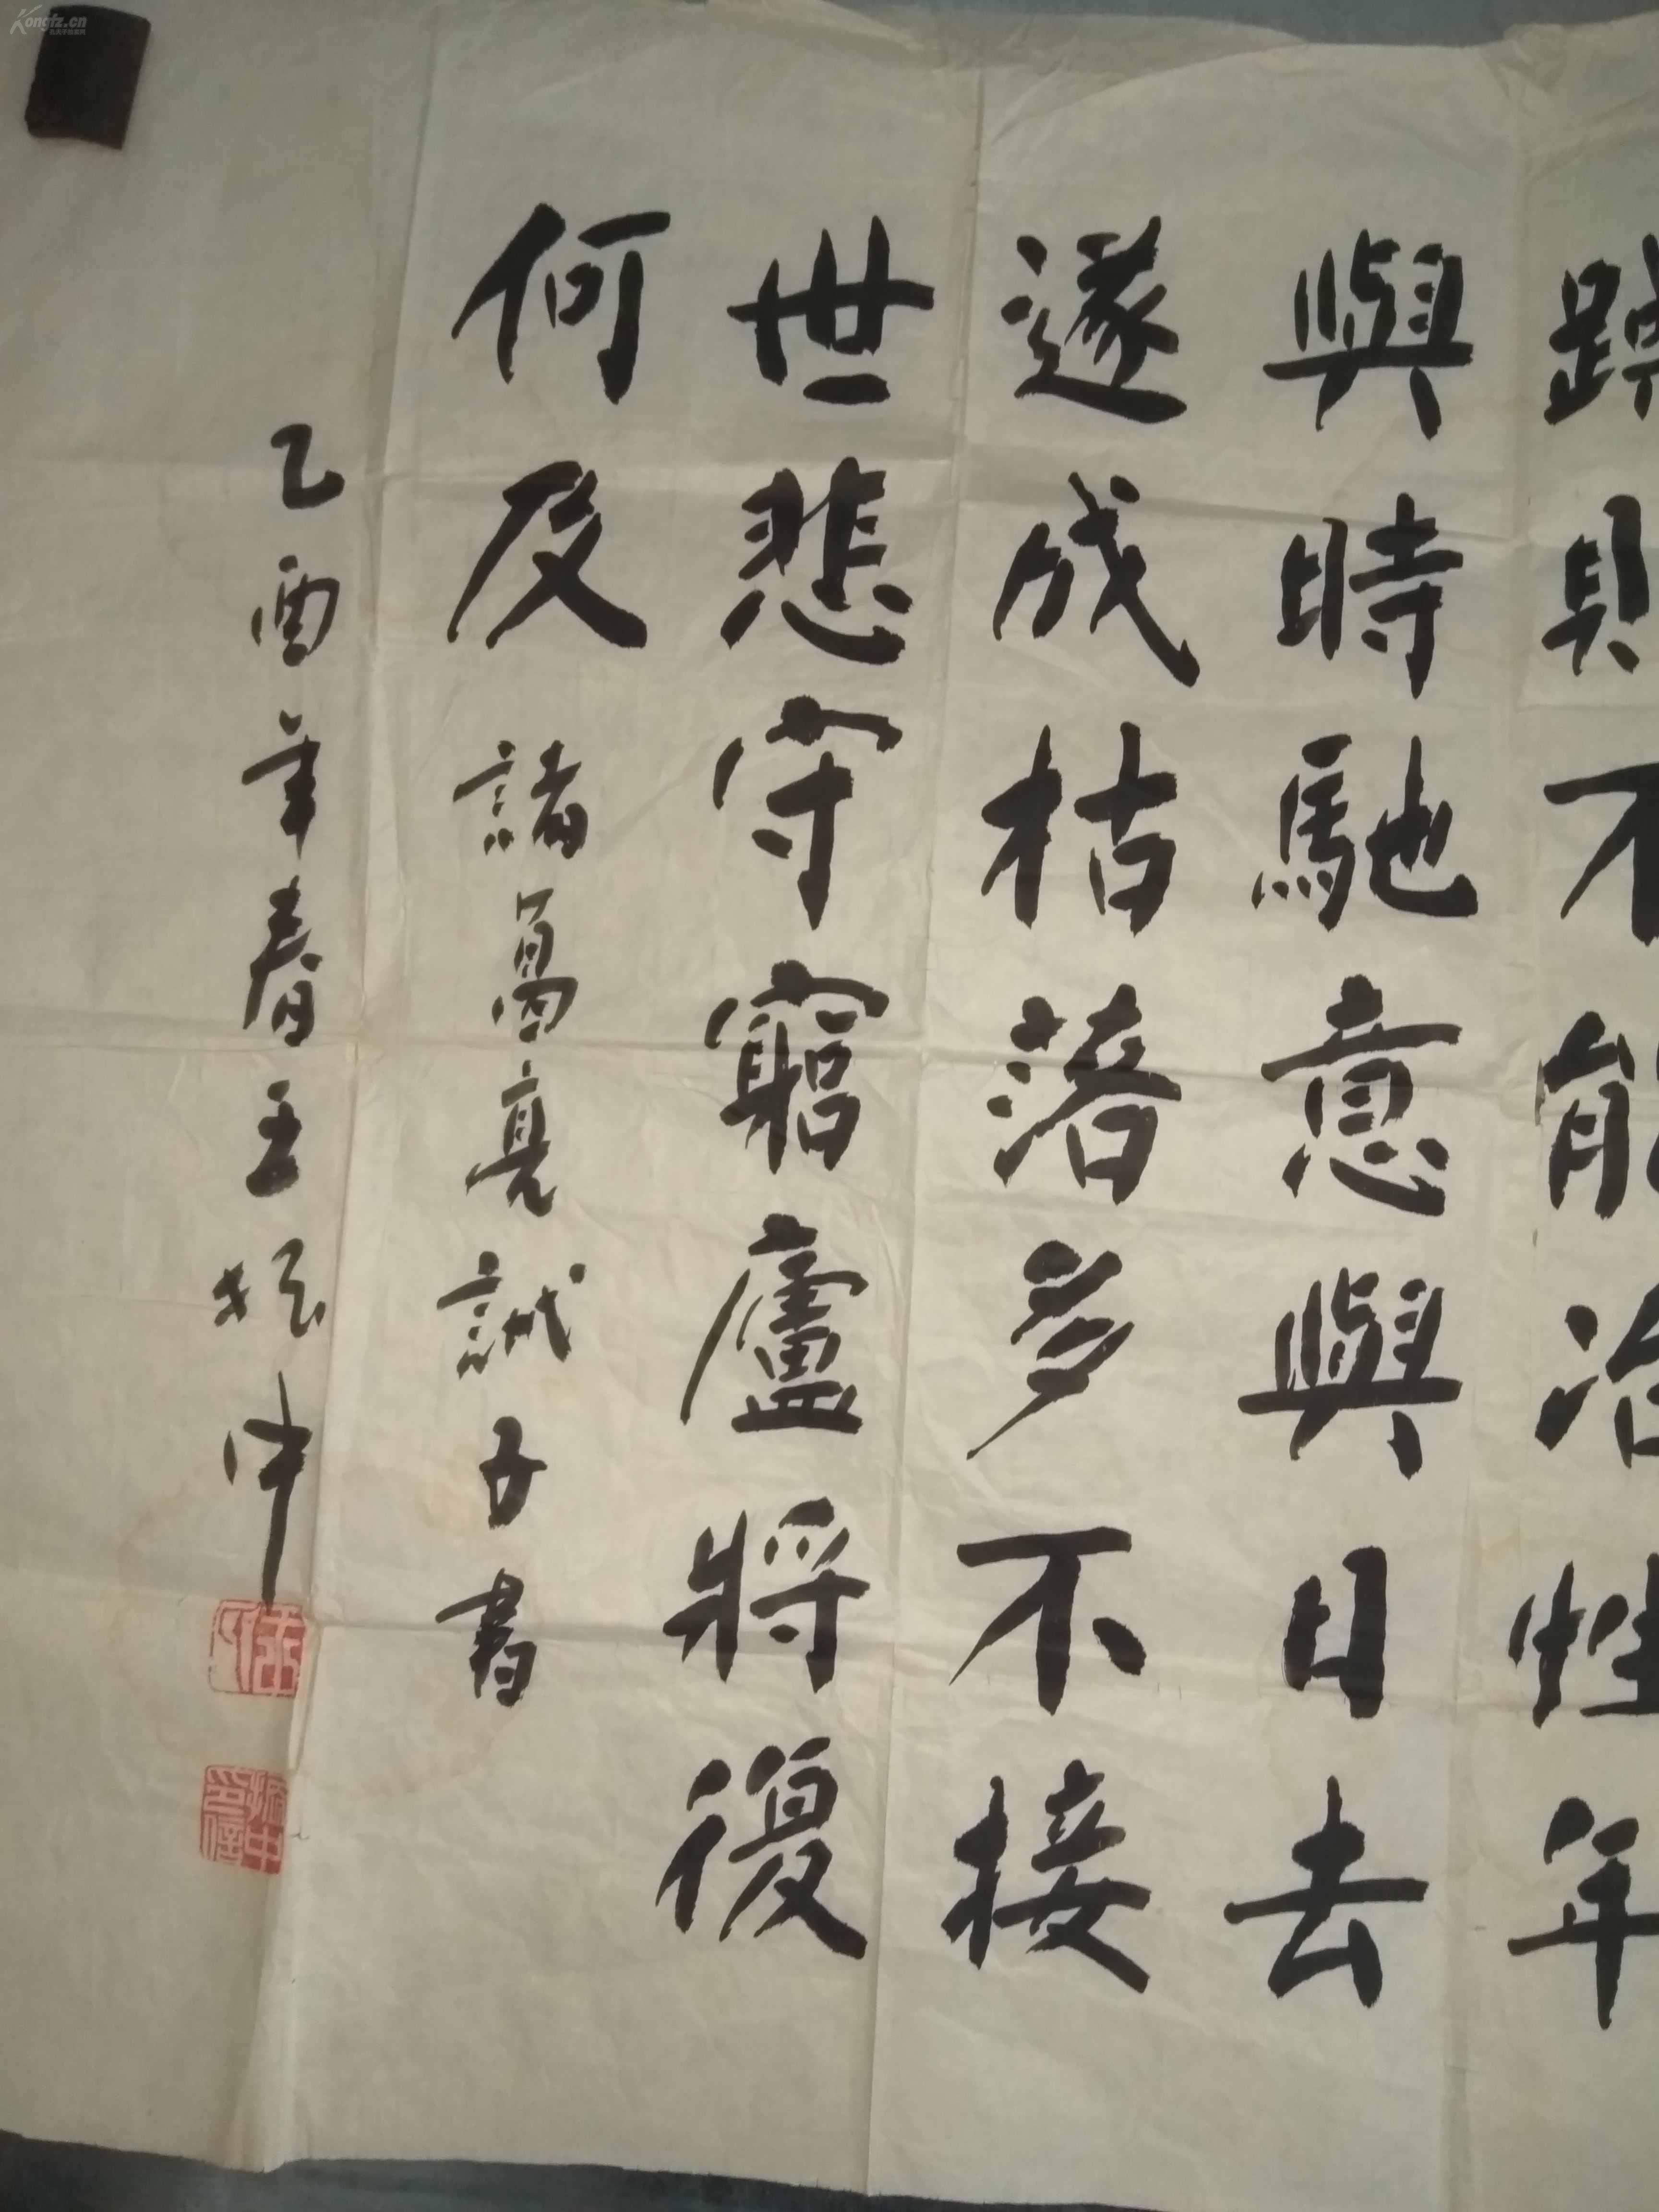 躁則不能冶性年
與時馳意與日去
遂成枯落多不接
世悲守窮廬將復
何及 諸葛亮誡子書
乙酉年春王振中
Kongfz.cn